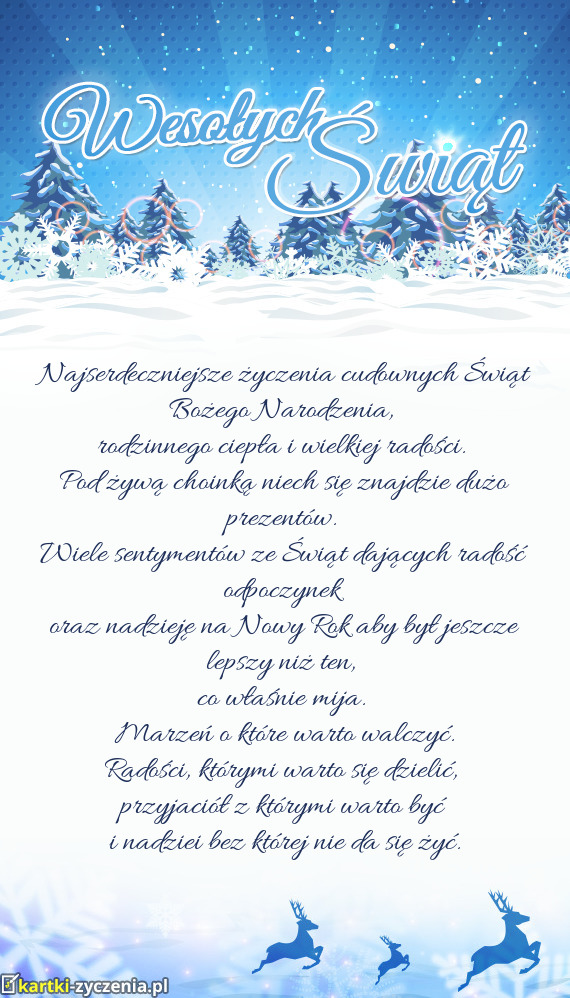 Wesołych
Świąt
Najserdeczniejsze życzenia cudownych Świąt
Bożego Narodzenia,
rodzinnego ciepła i wielkiej radości.
Pod żywą choinką niech się znajdzie dużo
prezentów.
Wiele sentymentów ze Świąt dających radość
odpoczynek
oraz nadzieję na Nowy Rok aby był jeszcze
lepszy niż ten,
co właśnie mija.
Marzeń o które warto walczyć.
Radości, którymi warto się dzielić,
przyjaciół z którymi warto być
i nadziei bez której nie da się żyć.
kartki-zyczenia.pl